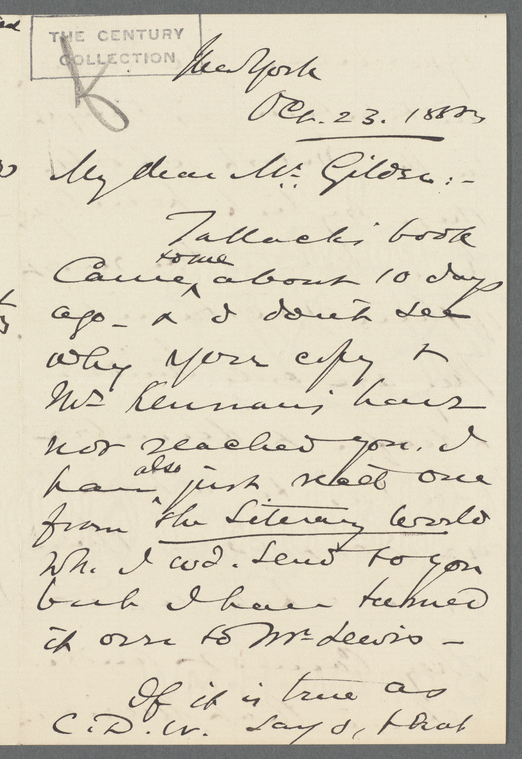 THE CENTURY
COLLECTION
New York
Oct. 23. 188
My dear Mr. Gilder:-
Tallack's book
came to me about 10 days
ago - & I don't see
why your copy &
Mr Kennan's have
not reached you. I
have also just rec'd one
from The Literary World
wh. I wd. send to you
but I have turned
it over to Mr Lewis -
If it is true as
C.D.W. says, that